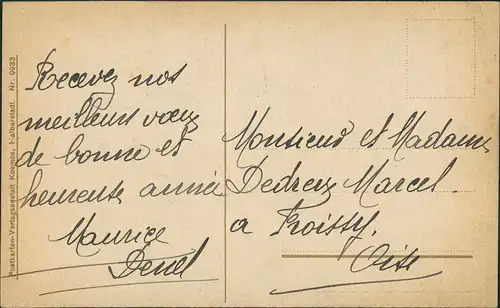 Recevez nos
meilleurs vœux
de bonne et
heureuse année
Maurice
Monsieur et Madame
Marcel.
a Froissy.
Oise
Postkarten-Verlagsanstalt Kosmos, Halberstadt. Nr. 9933